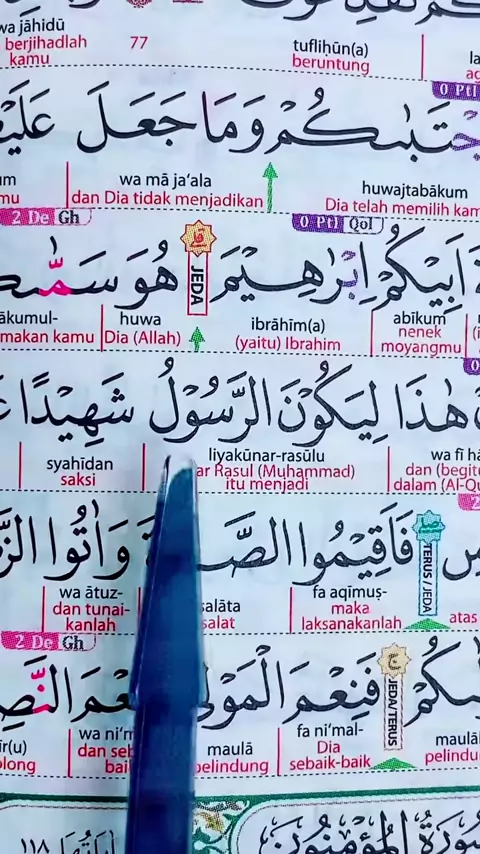 wa jāhidū
berjihadlah
kamu
77
tufliḥūn(a)
beruntung
0 Ptl
وَمَا جَعَلَ
wa mā ja‘ala
dan Dia tidak menjadikan
huwajtabākum
Dia telah memilih kam
2 De Gh
0 Ptl Qol
اَبِيْكُمْ اِبْرٰهِيْمَ هُوَ
JEDA
ākumul-
makan kamu
huwa
Dia (Allah)
ibrāhīm(a)
(yaitu) Ibrahim
abīkum
nenek
moyangmu
هٰذَا لِيَكُوْنَ الرَّسُوْلُ شَهِيْدًا
syahīdan
saksi
liyakūnar-rasūlu
ar Rasul (Muhammad)
itu menjadi
wa fī hā
dan (begit
dalam (Al-Qu
فَاَقِيْمُوا وَاٰتُوا
TERUS / JEDA
wa ātuz-
dan tunai-
kanlah
ṣalāta
salat
fa aqīmuṣ-
maka
laksanakanlah
atas
2 De Gh
فَنِعْمَ
JEDA/TERUS
wa ni‘m
dan seb
baik
maulā
pelindung
fa ni‘mal-
Dia
sebaik-baik
maulā
pelindu
سُوْرَةُ الْمُؤْمِنُوْنَ
١١٨